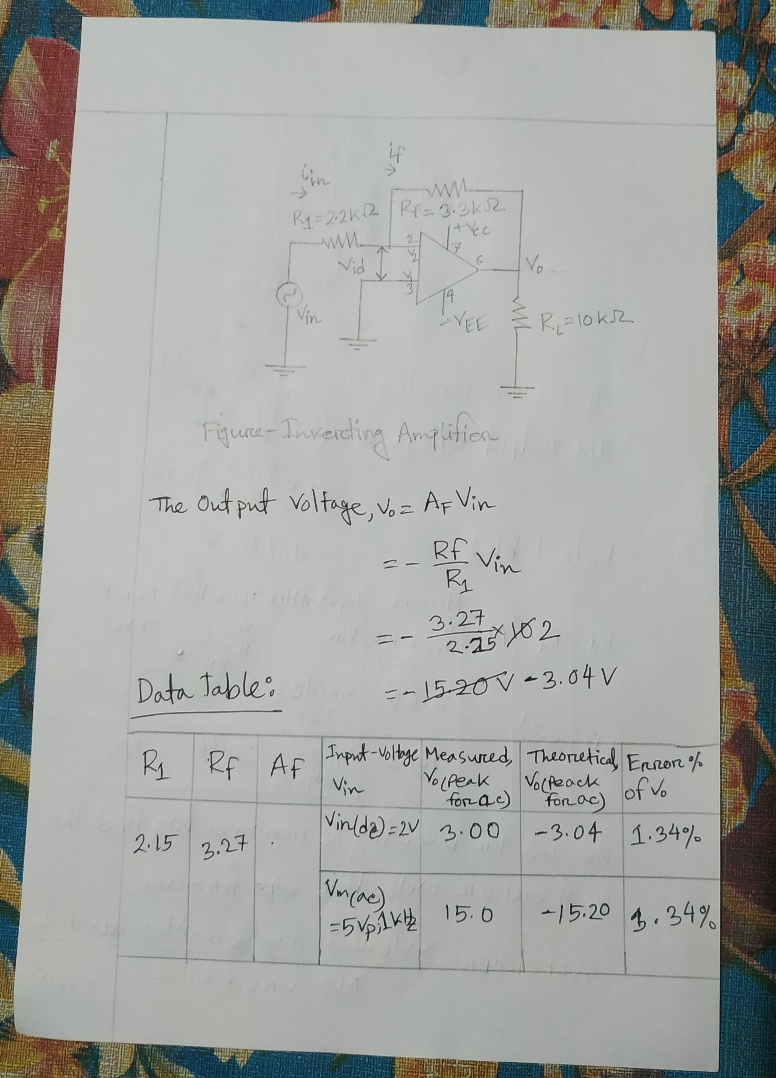 if
→
iin
→
R1=2.2kΩ Rf=3.3kΩ
+Vcc
2 7
V2
Vid 6 Vo
V1
3 4
Vin -VEE RL=10kΩ
Figure-Inverting Amplifier
The Output Voltage, Vo = AF Vin
= - Rf/R1 Vin
= - 3.27/2.15 × 10 2
= - 15.20 V - 3.04 V
Data Table:
R1 Rf AF Input-Voltage Vin Measured, Vo(Peak for ac) Theoretical, Vo(Peack for ac) Error % of Vo
2.15 3.27 Vin(dc)=2V 3.00 -3.04 1.34%
Vin(ac) =5Vp,1kHz 15.0 -15.20 1.34%